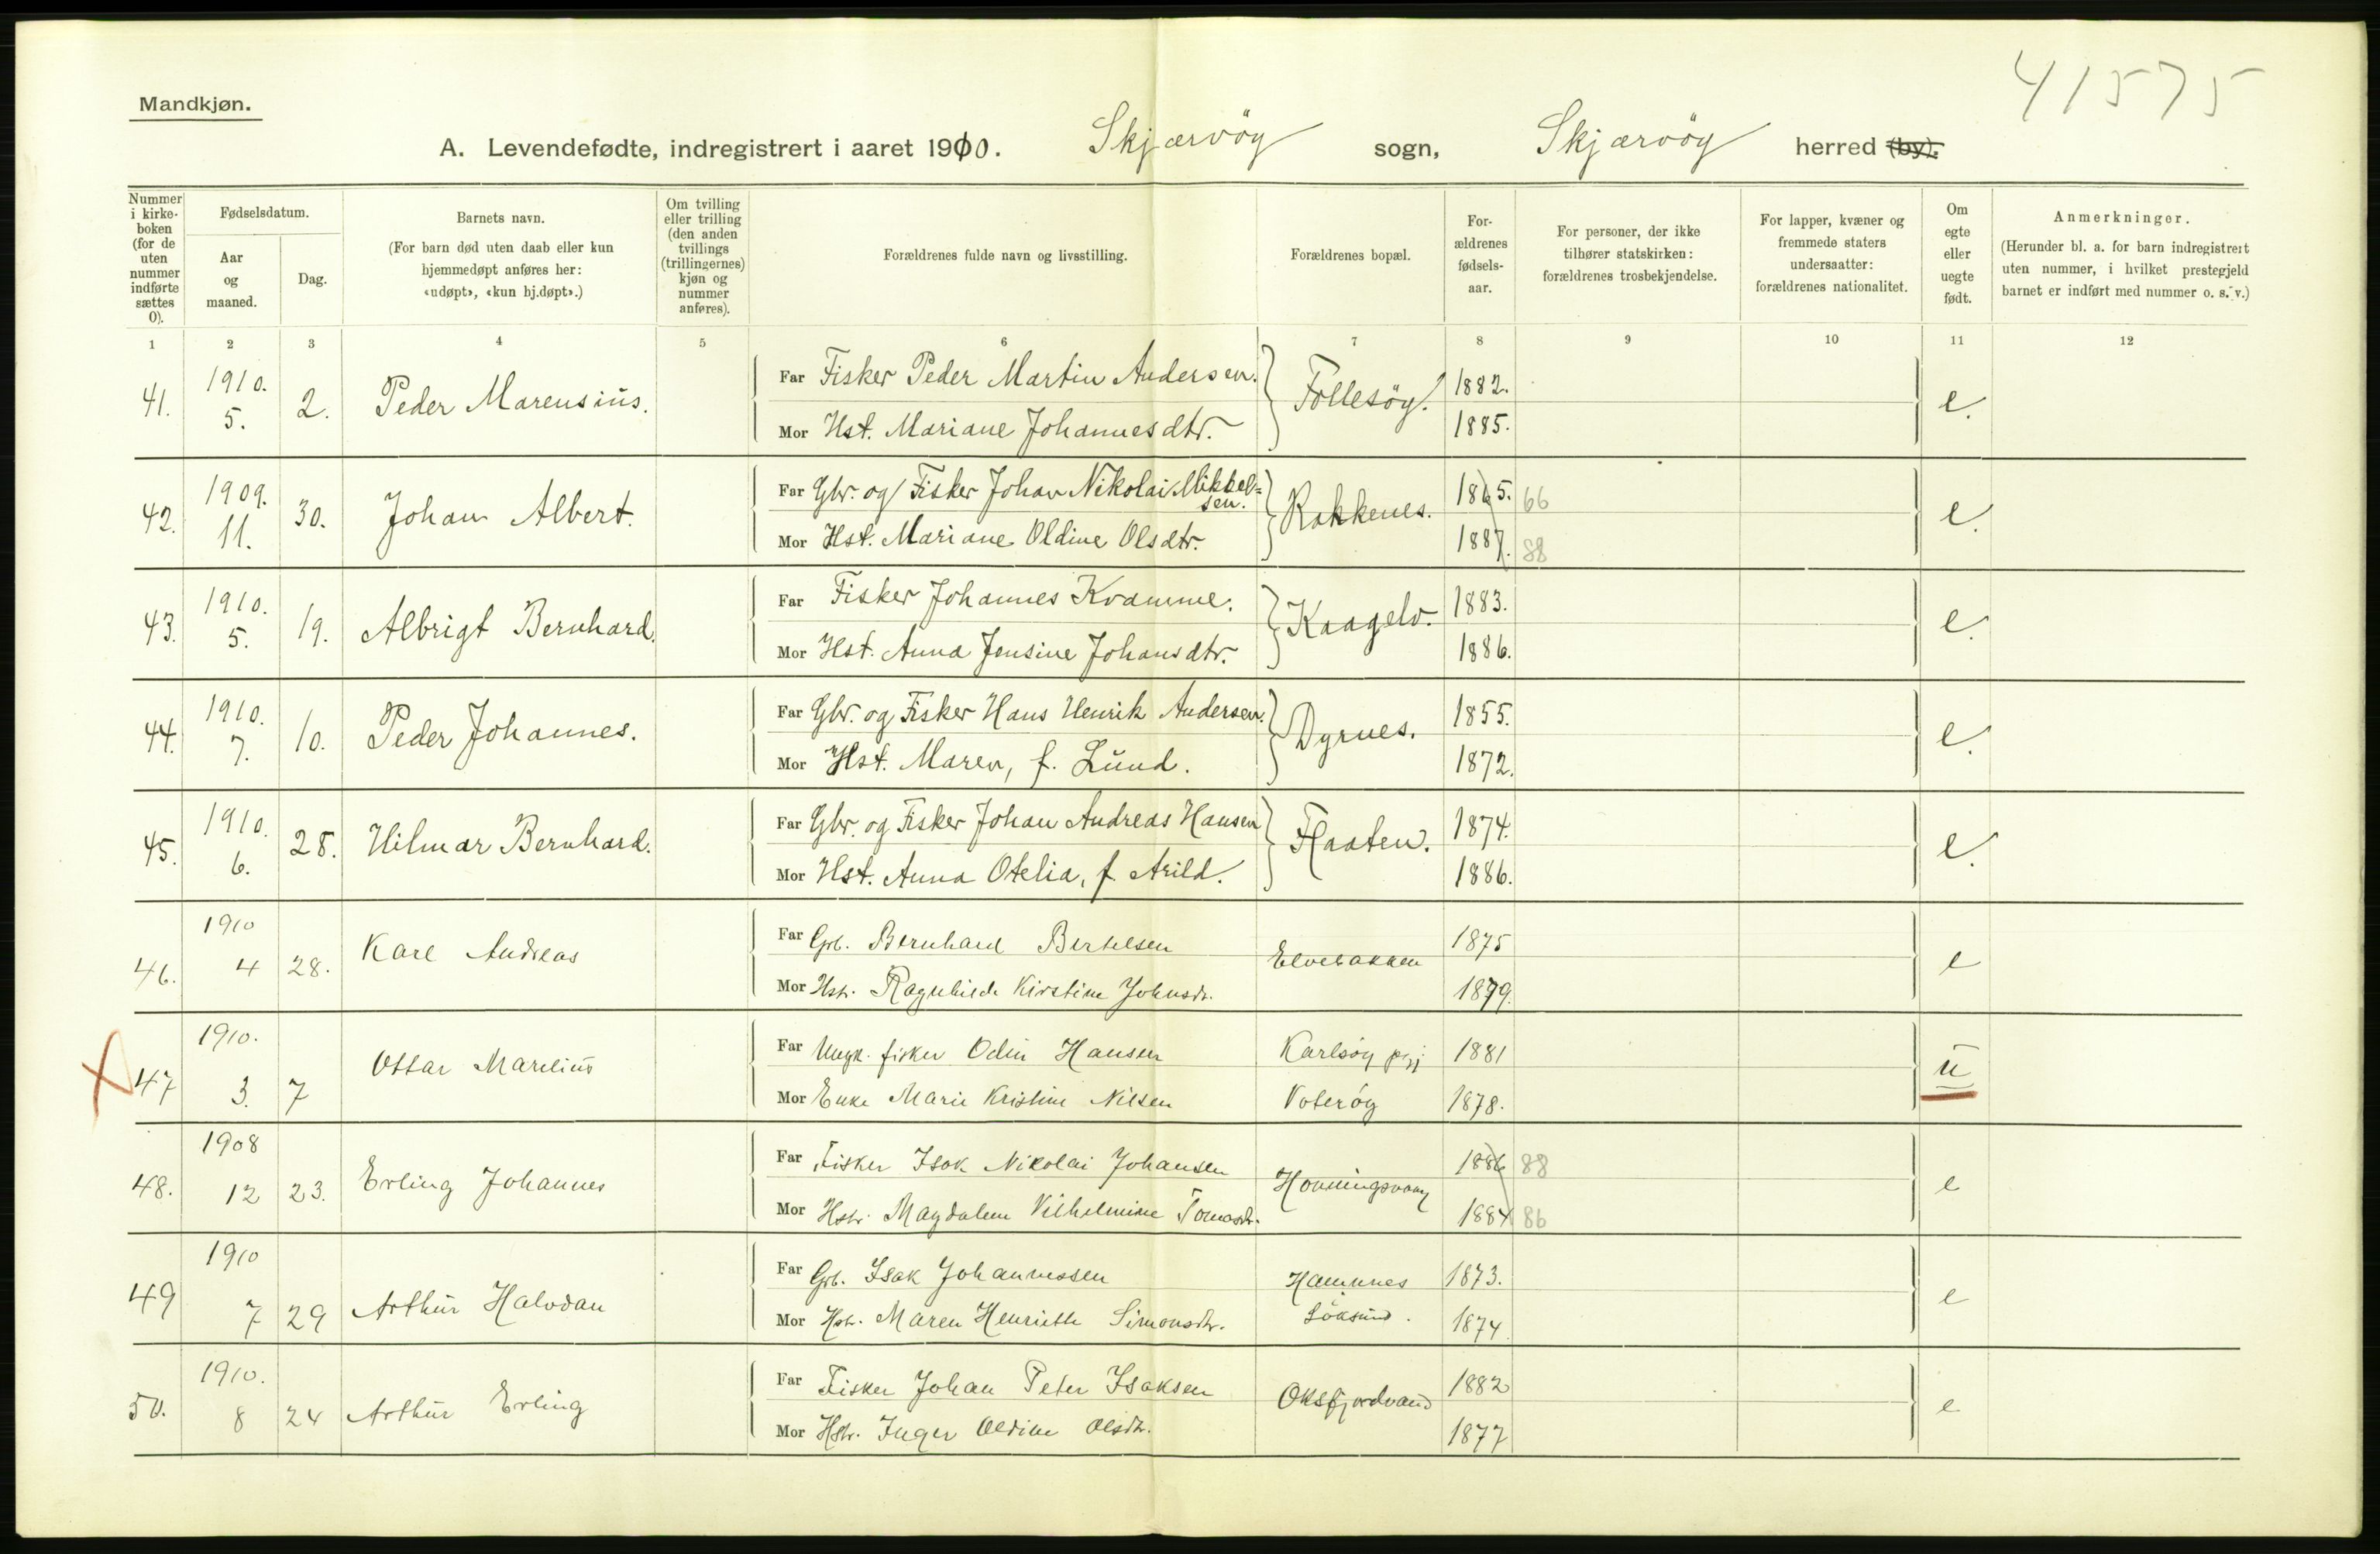 41575
Mandkjøn.
A. Levendefødte, indregistrert i aaret 1910. Skjærvöy sogn, Skjærvöy herred (by).
Nummer i kirke-boken (for de uten nummer indførte sættes 0).
Fødselsdatum.
Aar og maaned.
Dag.
Barnets navn.
(For barn død uten daab eller kun hjemmedøpt anføres her: «udøpt», «kun hj.døpt».)
Om tvilling eller trilling (den anden tvillings (trillingernes) kjøn og nummer anføres).
Forældrenes fulde navn og livsstilling.
Forældrenes bopæl.
For-ældrenes fødsels-aar.
For personer, der ikke tilhører statskirken: forældrenes trosbekjendelse.
For lapper, kvæner og fremmede staters undersaatter: forældrenes nationalitet.
Om egte eller uegte født.
Anmerkninger.
(Herunder bl. a. for barn indregistrert uten nummer, i hvilket prestegjeld barnet er indført med nummer o. s. v.)
1 2 3 4 5 6 7 8 9 10 11 12
41. 1910. 5. 2. Peder Marensius. Far Fisker Peder Martin Andersen. Follesöy. 1882. e.
Mor Hst. Mariane Johannesdtr. 1885.
42. 1909. 11. 30. Johan Albert. Far Gbr. og Fisker Johan Nikolai Mikkel=
sen. Rakkenes. 1865. 66 e.
Mor Hst. Mariane Oldine Olsdtr. 1887. 88
43. 1910. 5. 19. Albrigt Bernhard. Far Fisker Johannes Kvamme. Kaagelv. 1883. e.
Mor Hst. Anna Jensine Johansdtr. 1886.
44. 1910. 7. 10. Peder Johannes. Far Gbr. og Fisker Hans Henrik Andersen. Dyrnes. 1855. e.
Mor Hst. Maren, f. Lund. 1872.
45. 1910. 6. 28. Hilmar Bernhard. Far Gbr. og Fisker Johan Andreas Hansen Flaaten. 1874. e.
Mor Hst. Anna Otelia, f. Arild. 1886.
46. 1910 4 28. Karl Andreas Far Grb. Bernhard Bertelsen Elvebakken 1875 e
Mor Hstr. Ragnhilde Kirstine Johnsdr. 1879.
47 1910. 3. 7 Ottar Marelius Far Ungk. fisker Odin Hansen Karlsöy pgj 1881 u
Mor Enke Marie Kristine Nilsen Voteröy 1878.
48. 1908 12 23. Erling Johannes Far Fisker Isak Nikolai Johansen Honningsvaag 1886 88 e
Mor Hstr. Magdalene Vilhelmine Tomasdr. 1884 86
49 1910 7 29 Arthur Halvdan Far Grb. Isak Johannessen Hamnnes 1873. e
Mor Hstr. Maren Henriette Simonsdr. Löksund. 1874.
50. 1910. 8 24 Arthur Erling Far Fisker Johan Peter Isaksen Oksfjordvand 1882 e
Mor Hstr. Inger Oldine Olsdtr. 1877